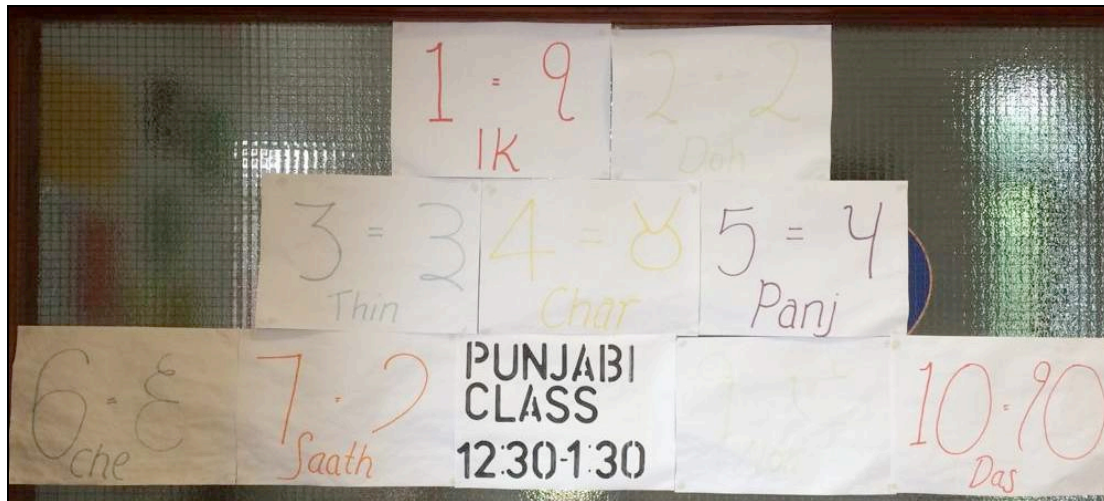 1 = ੧
IK
2 = ੨
Doh
3 = ੩
Thin
4 = ੪
Char
5 = ੫
Panj
6 = ੬
che
7 = ੭
Saath
PUNJABI
CLASS
12:30-1:30
10 = ੧੦
Das